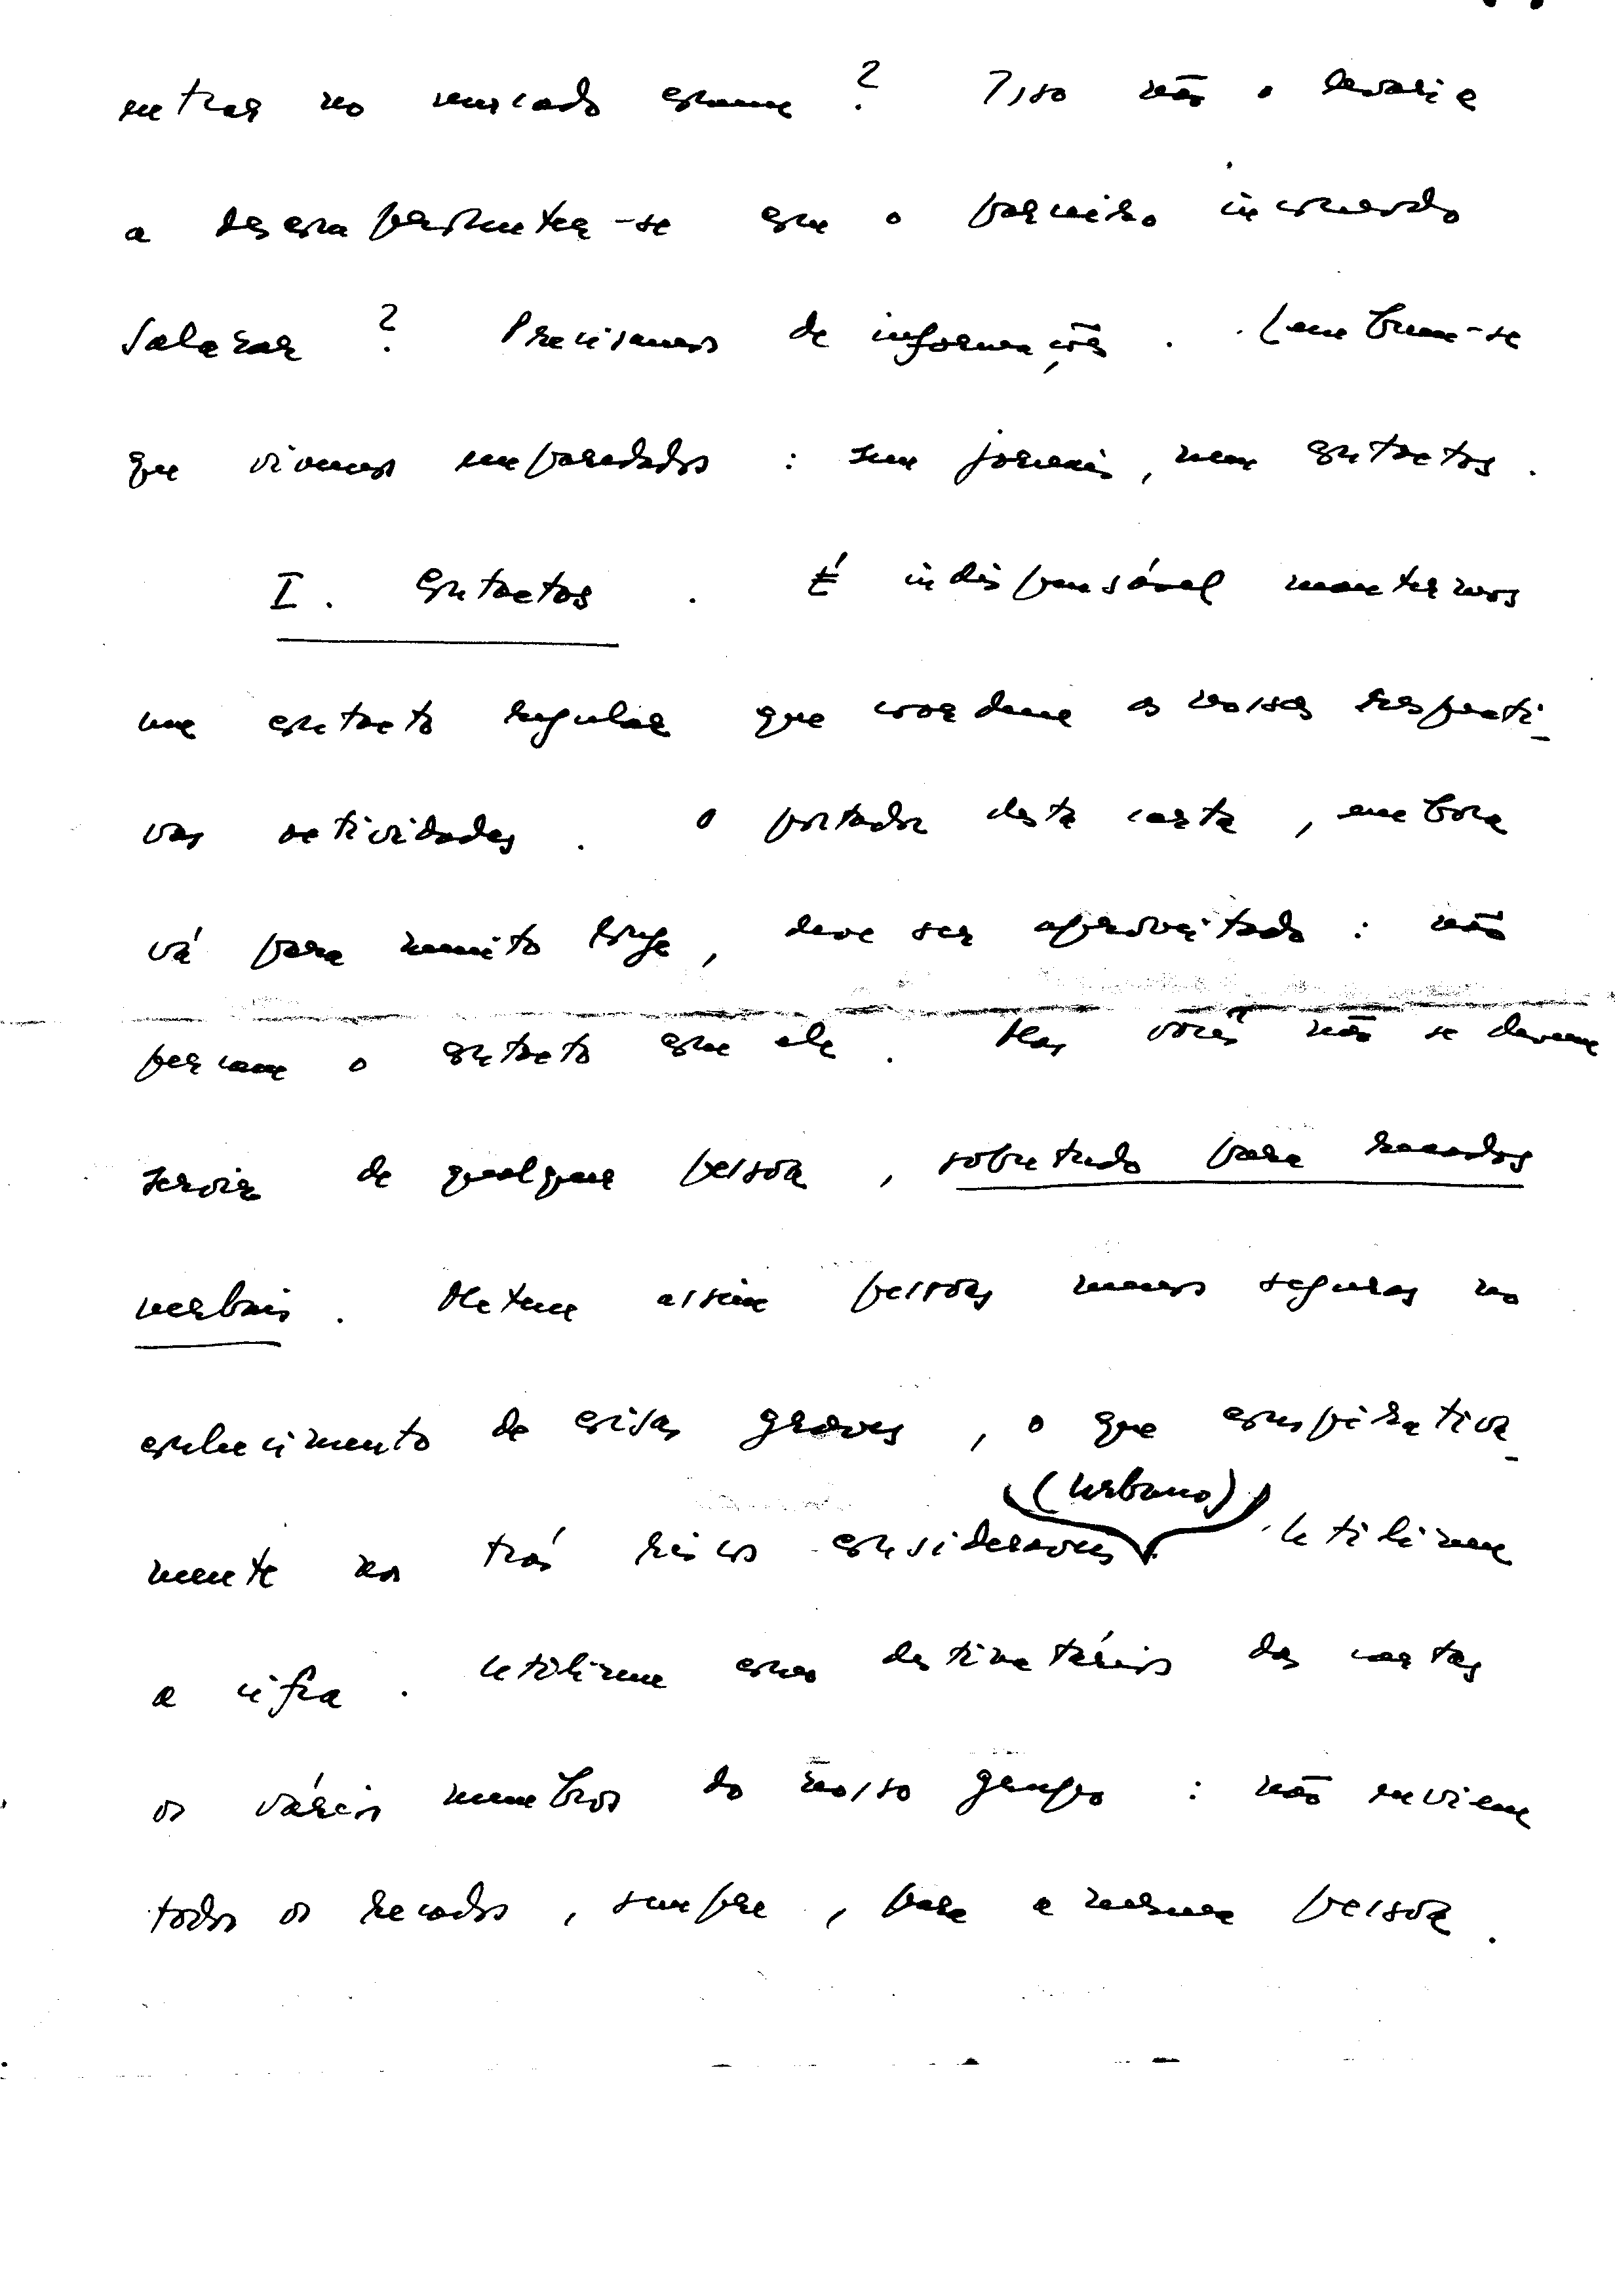 entrar no mercado comum? Isso não o levaria
a descontentar-se com o parceiro incómodo
Salazar? Precisamos de informações. Lembrem-se
que vivemos emparedados: sem jornais, nem contactos.
I. Contactos. É indispensável mantermos
um contacto regular que coordene as nossas respecti-
vas actividades. O portador desta carta, embora
vá para muito longe, deve ser aproveitado: não
percam o contacto com ele. Mas vocês não se devem
servir de qualquer pessoa, sobretudo para recados
verbais. Metem assim pessoas menos seguras no
conhecimento de coisas graves, o que conspirativa-
(Urbano)
mente nos traz riscos consideráveis. Utilizem
a cifra. Utilizem como destinatários das cartas
os vários membros do nosso grupo: não enviem
todos os recados, sempre, para a mesma pessoa.